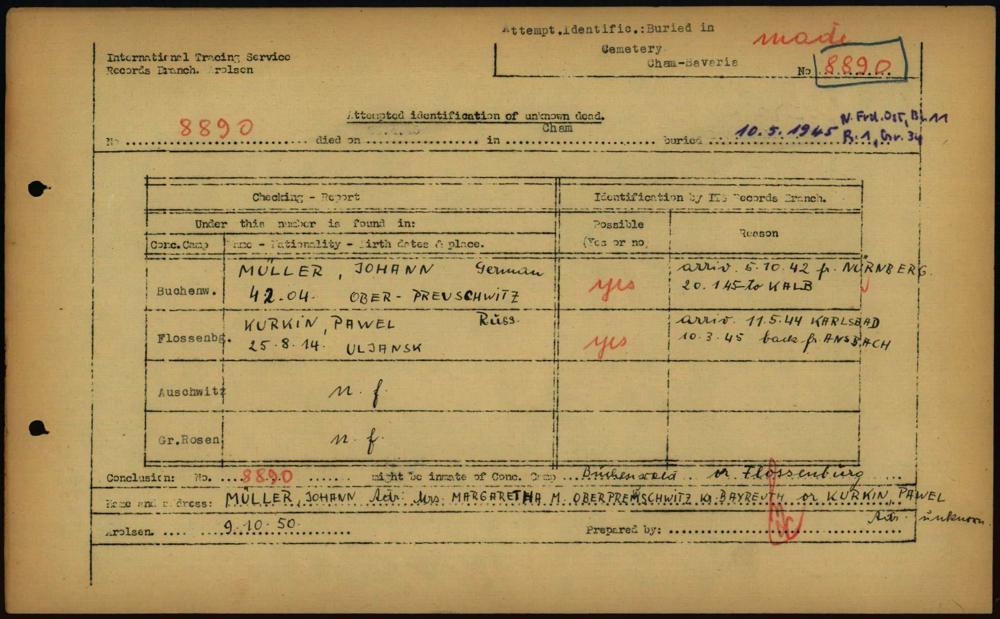 Attempt.Identific.:Buried in
Cemetery
Cham-Bavaria
made
No 8890
International Tracing Service
Records Branch. Arolsen
Attempted identification of unknown dead.
N. Frd. Ost, Bl. 11
R. 1, Gr. 34
No 8890 died on in Cham buried 10.5.1945
Checking - Report Identification by ITS Records Branch.
Under this number is found in: Possible (Yes or no) Reason
Conc.Camp Name - Nationality - Birth dates & place.
Buchenw. MÜLLER, JOHANN German yes arriv. 5.10.42 fr. NÜRNBERG.
42.04. OBER-PREUSCHWITZ 20.1 45 to KALB
Flossenbg. KURKIN, PAWEL Russ. yes arriv. 11.5.44 KARLSBAD
25.8.14. ULJANSK 10.3.45 back fr. ANSBACH
Auschwitz n. f.
Gr.Rosen n. f.
Conclusion: No. 8890 might be inmate of Conc. Camp Buchenwald or Flossenbürg
Name and address: MÜLLER, JOHANN Adr: Mrs. MARGARETHA M. OBERPREUSCHWITZ Kr. BAYREUTH or KURKIN, PAWEL
Adr. unknown.
Arolsen. 9.10.50. Prepared by: